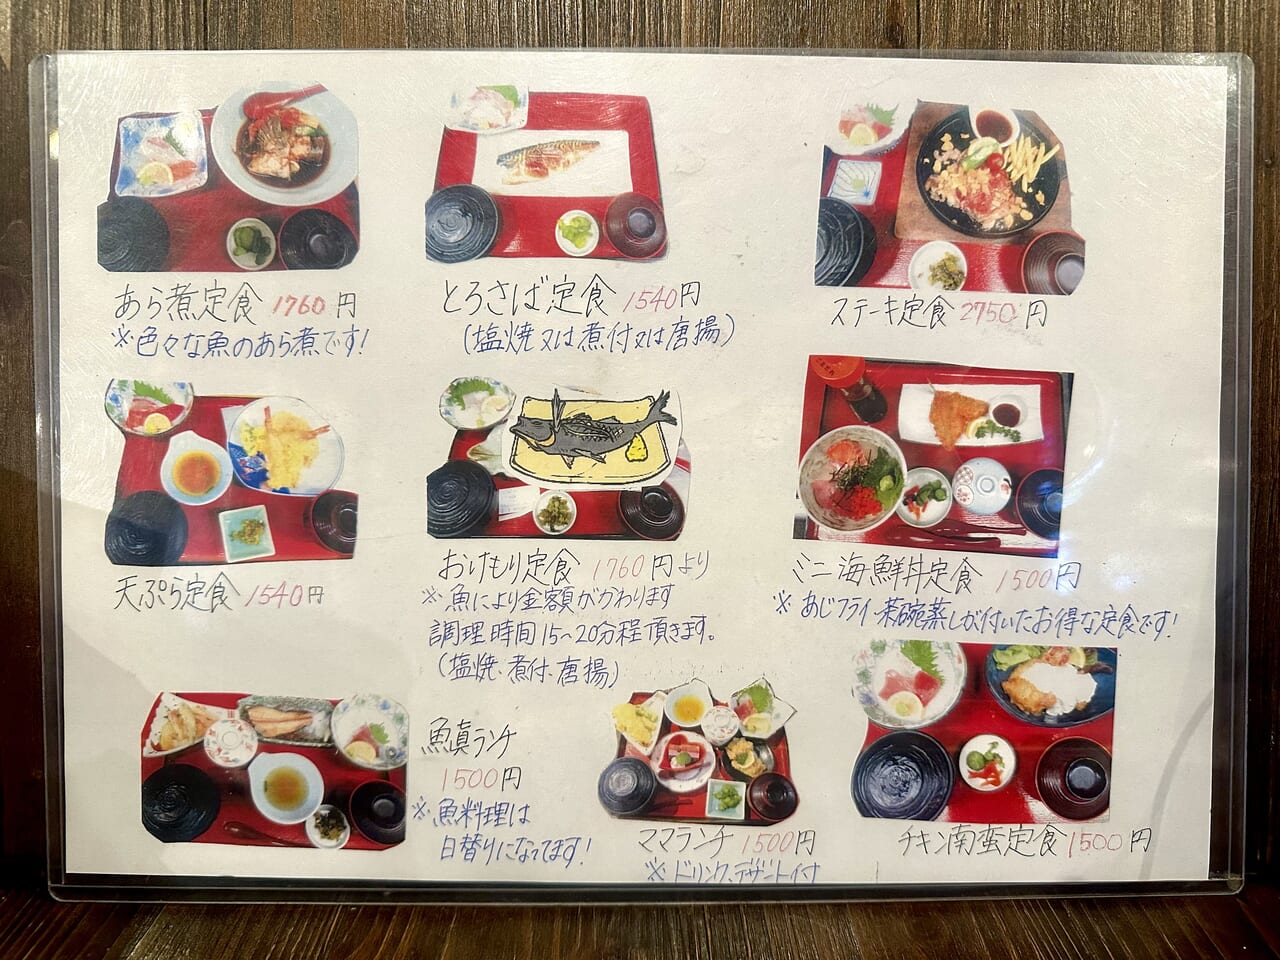 あら煮定食 1760円
※色々な魚のあら煮です!
とろさば定食 1540円
(塩焼又は煮付又は唐揚)
ステーキ定食 2750円
天ぷら定食 1540円
おけもり定食 1760円より
※魚により金額がかわります
調理時間15~20分程頂きます。
(塩焼、煮付、唐揚)
ミニ海鮮丼定食 1500円
※あじフライ・茶碗蒸しが付いたお得な定食です!
魚真ランチ
1500円
※魚料理は
日替りになってます!
ママランチ 1500円
※ドリンク、デザート付
チキン南蛮定食 1500円